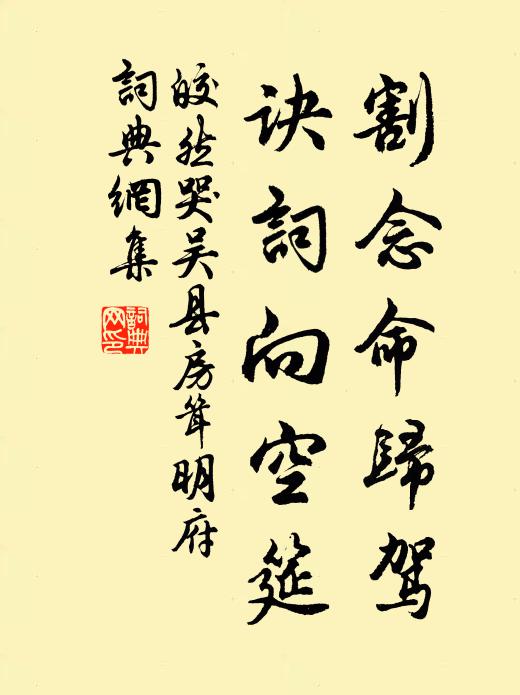 割念命歸駕
訣詞向空筵
皎然哭吴县房耸明府
詞典網集
詞典网印